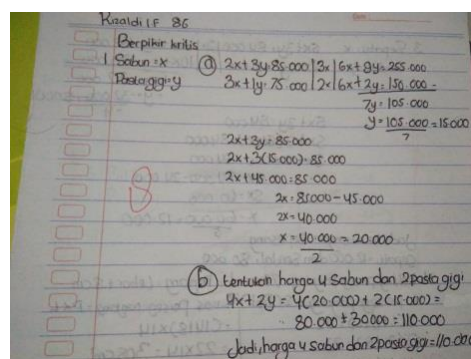 Rizaldi I.F 8G
Berpikir kritis
1 Sabun = x
Pasta gigi = y
(a) 2x + 3y = 85.000 | 3x | 6x + 9y = 255.000
3x + 1y = 75.000 | 2x | 6x + 2y = 150.000 -
7y = 105.000
y = 105.000 = 15.000
7
2x + 3y = 85.000
2x + 3(15.000) = 85.000
2x + 45.000 = 85.000
2x = 85000 - 45.000
2x = 40.000
x = 40.000 = 20.000
2
8
(b) tentukan harga 4 sabun dan 2 pasta gigi
4x + 2y = 4(20.000) + 2(15.000) =
80.000 + 30000 = 110.000
Jadi, harga 4 sabun dan 2 pasta gigi = 110.000